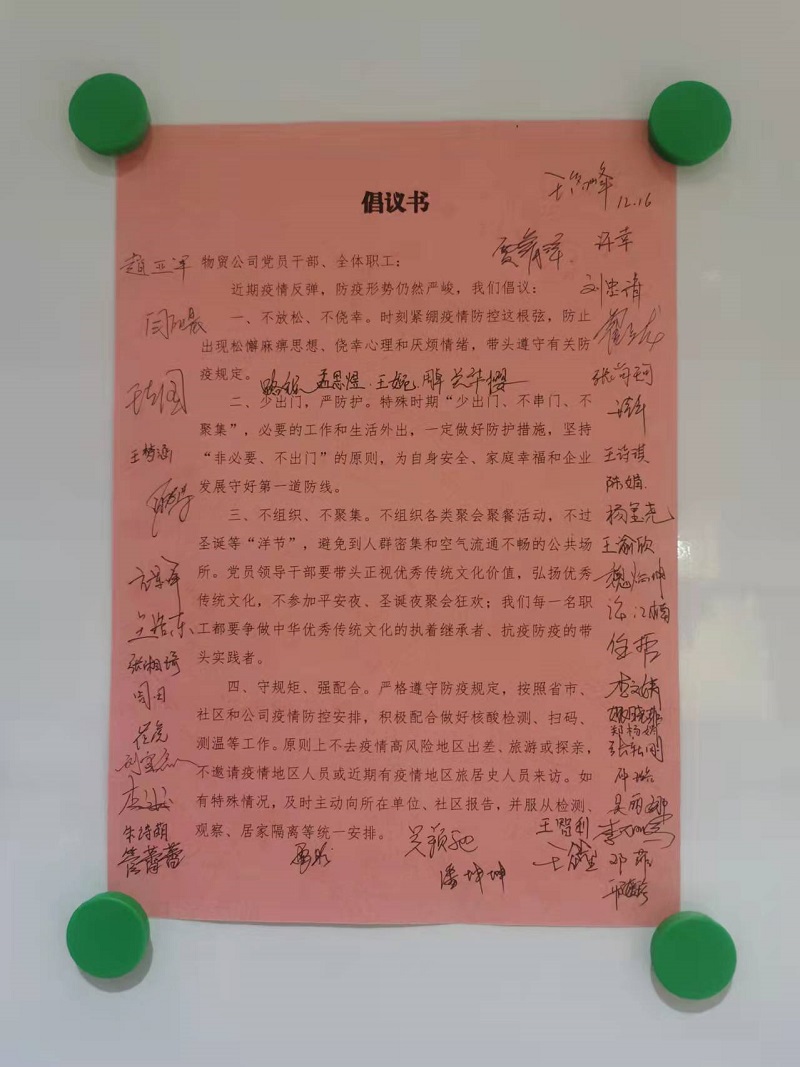 倡议书
12.16
物贸公司党员干部、全体职工：
近期疫情反弹，防疫形势仍然严峻，我们倡议：
一、不放松、不侥幸。时刻紧绷疫情防控这根弦，防止
出现松懈麻痹思想、侥幸心理和厌烦情绪，带头遵守有关防
疫规定。
二、少出门，严防护。特殊时期“少出门、不串门、不
聚集”，必要的工作和生活外出，一定做好防护措施，坚持
“非必要、不出门”的原则，为自身安全、家庭幸福和企业
发展守好第一道防线。
三、不组织、不聚集。不组织各类聚会聚餐活动，不过
圣诞等“洋节”，避免到人群密集和空气流通不畅的公共场
所。党员领导干部要带头正视优秀传统文化价值，弘扬优秀
传统文化，不参加平安夜、圣诞夜聚会狂欢；我们每一名职
工都要争做中华优秀传统文化的执着继承者、抗疫防疫的带
头实践者。
四、守规矩、强配合。严格遵守防疫规定，按照省市、
社区和公司疫情防控安排，积极配合做好核酸检测、扫码、
测温等工作。原则上不去疫情高风险地区出差、旅游或探亲，
不邀请疫情地区人员或近期有疫情地区旅居史人员来访。如
有特殊情况，及时主动向所在单位、社区报告，并服从检测、
观察、居家隔离等统一安排。
赵亚军
王梦涵
张湘琦
闫丹
崔虎
朱诗萌
管蕾蕾
潘坤坤
王智利
许幸
刘忠靖
王诗琪
陈娟
王渝欣
任哲
李文娟
吴丽娜
邓菲